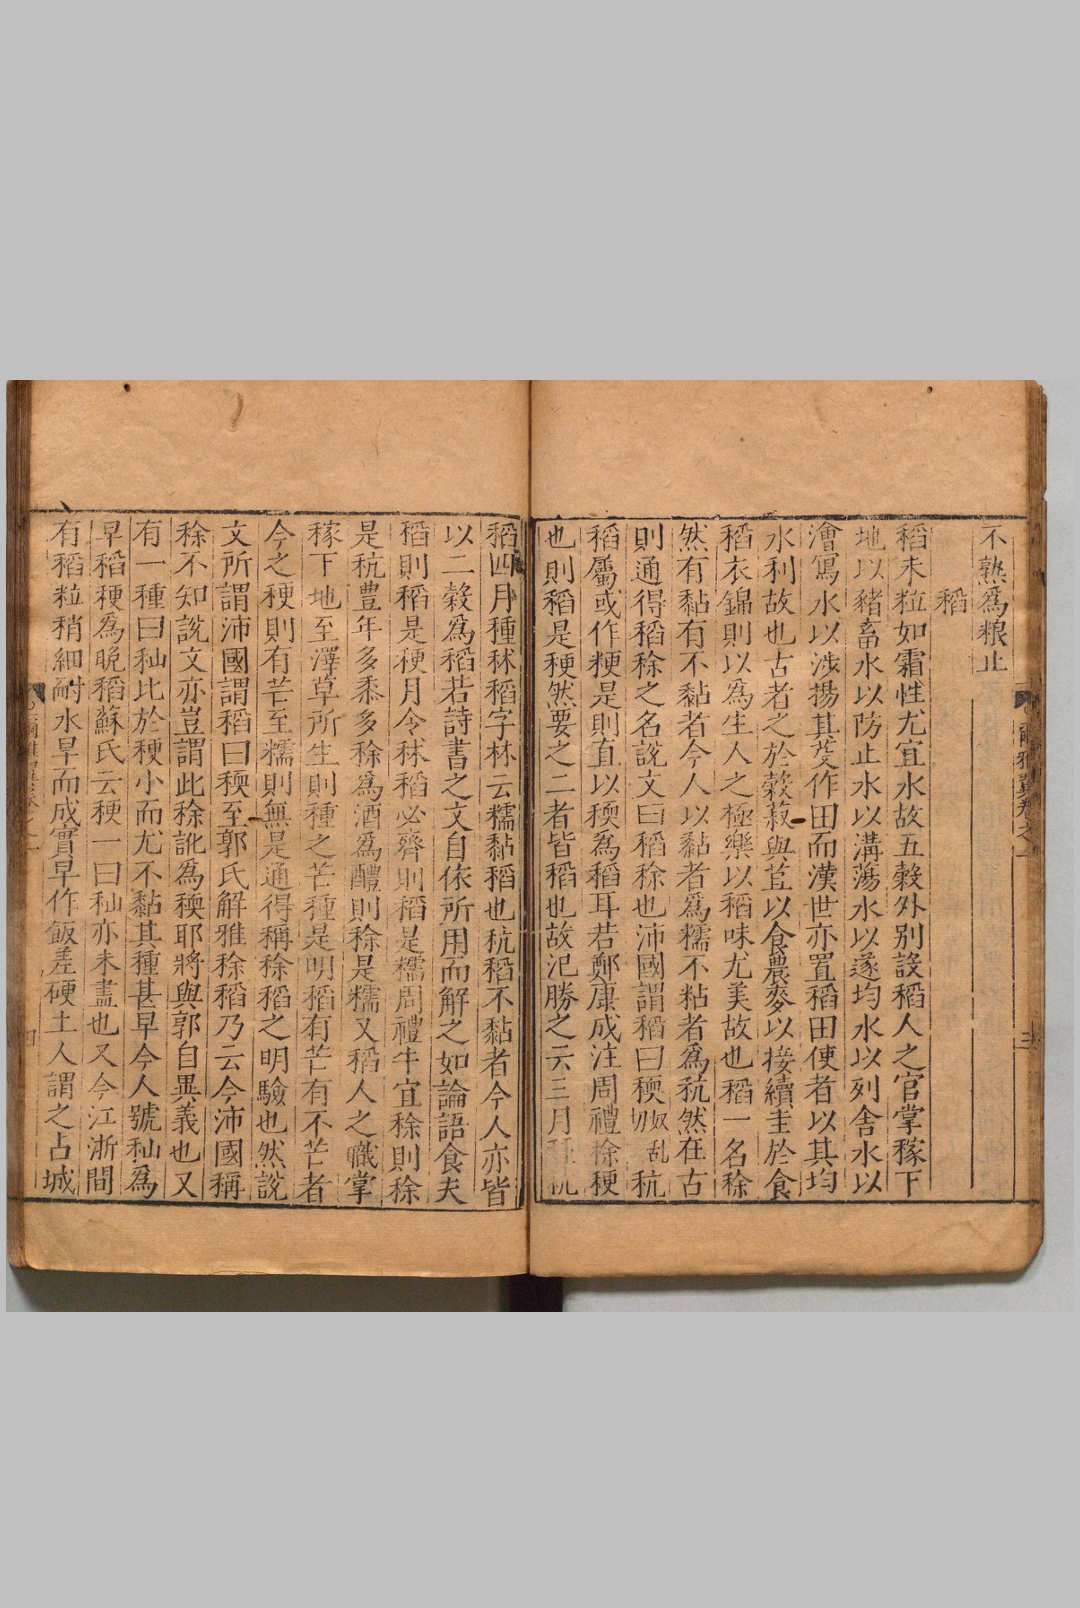 不熟爲粮止
稻
稻米粒如霜性尤宜水故五穀外別設稻人之官掌稼下
地以豬畜水以防止水以溝蕩水以遂均水以列舍水以
澮寫水以涉揚其芟作田而漢世亦置稻田使者以其均
水利故也古者之於穀菽與苴以食農麥以接續圭於食
稻衣錦則以爲生人之極樂以稻味尤美故也稻一名稌
然有黏有不黏者今人以黏者爲糯不粘者爲秔然在古
則通得稻稌之名說文曰稻稌也沛國謂稻曰稬奴亂切秔
稻屬或作粳是則直以稬爲稻耳若鄭康成注周禮稌粳
也則稻是稉然要之二者皆稻也故氾勝之云三月種秔
稻四月種秫稻字林云糯黏稻也秔稻不黏者今人亦皆
以二穀爲稻若詩書之文自依所用而解之如論語食夫
稻則稻是稉月令秫稻必齊則稻是糯周禮牛宜稌則稌
是秔豊年多黍多稌爲酒爲醴則稌是糯又稻人之職掌
稼下地至澤草所生則種之芒種是明稻有芒有不芒者
今之稉則有芒至糯則無是通得稱稌稻之明驗也然說
文所謂沛國謂稻曰稬至郭氏解雅稌稻乃云今沛國稱
稌不知說文亦豈謂此稌訛爲稬耶將與郭自異義也又
有一種曰秈比於稉小而尤不黏其種甚早今人號秈爲
早稻稉爲晚稻蘇氏云稉一曰秈亦未盡也又今江浙間
有稻粒稍細耐水旱而成實早作飯差硬土人謂之占城
爾雅翼卷之一
三